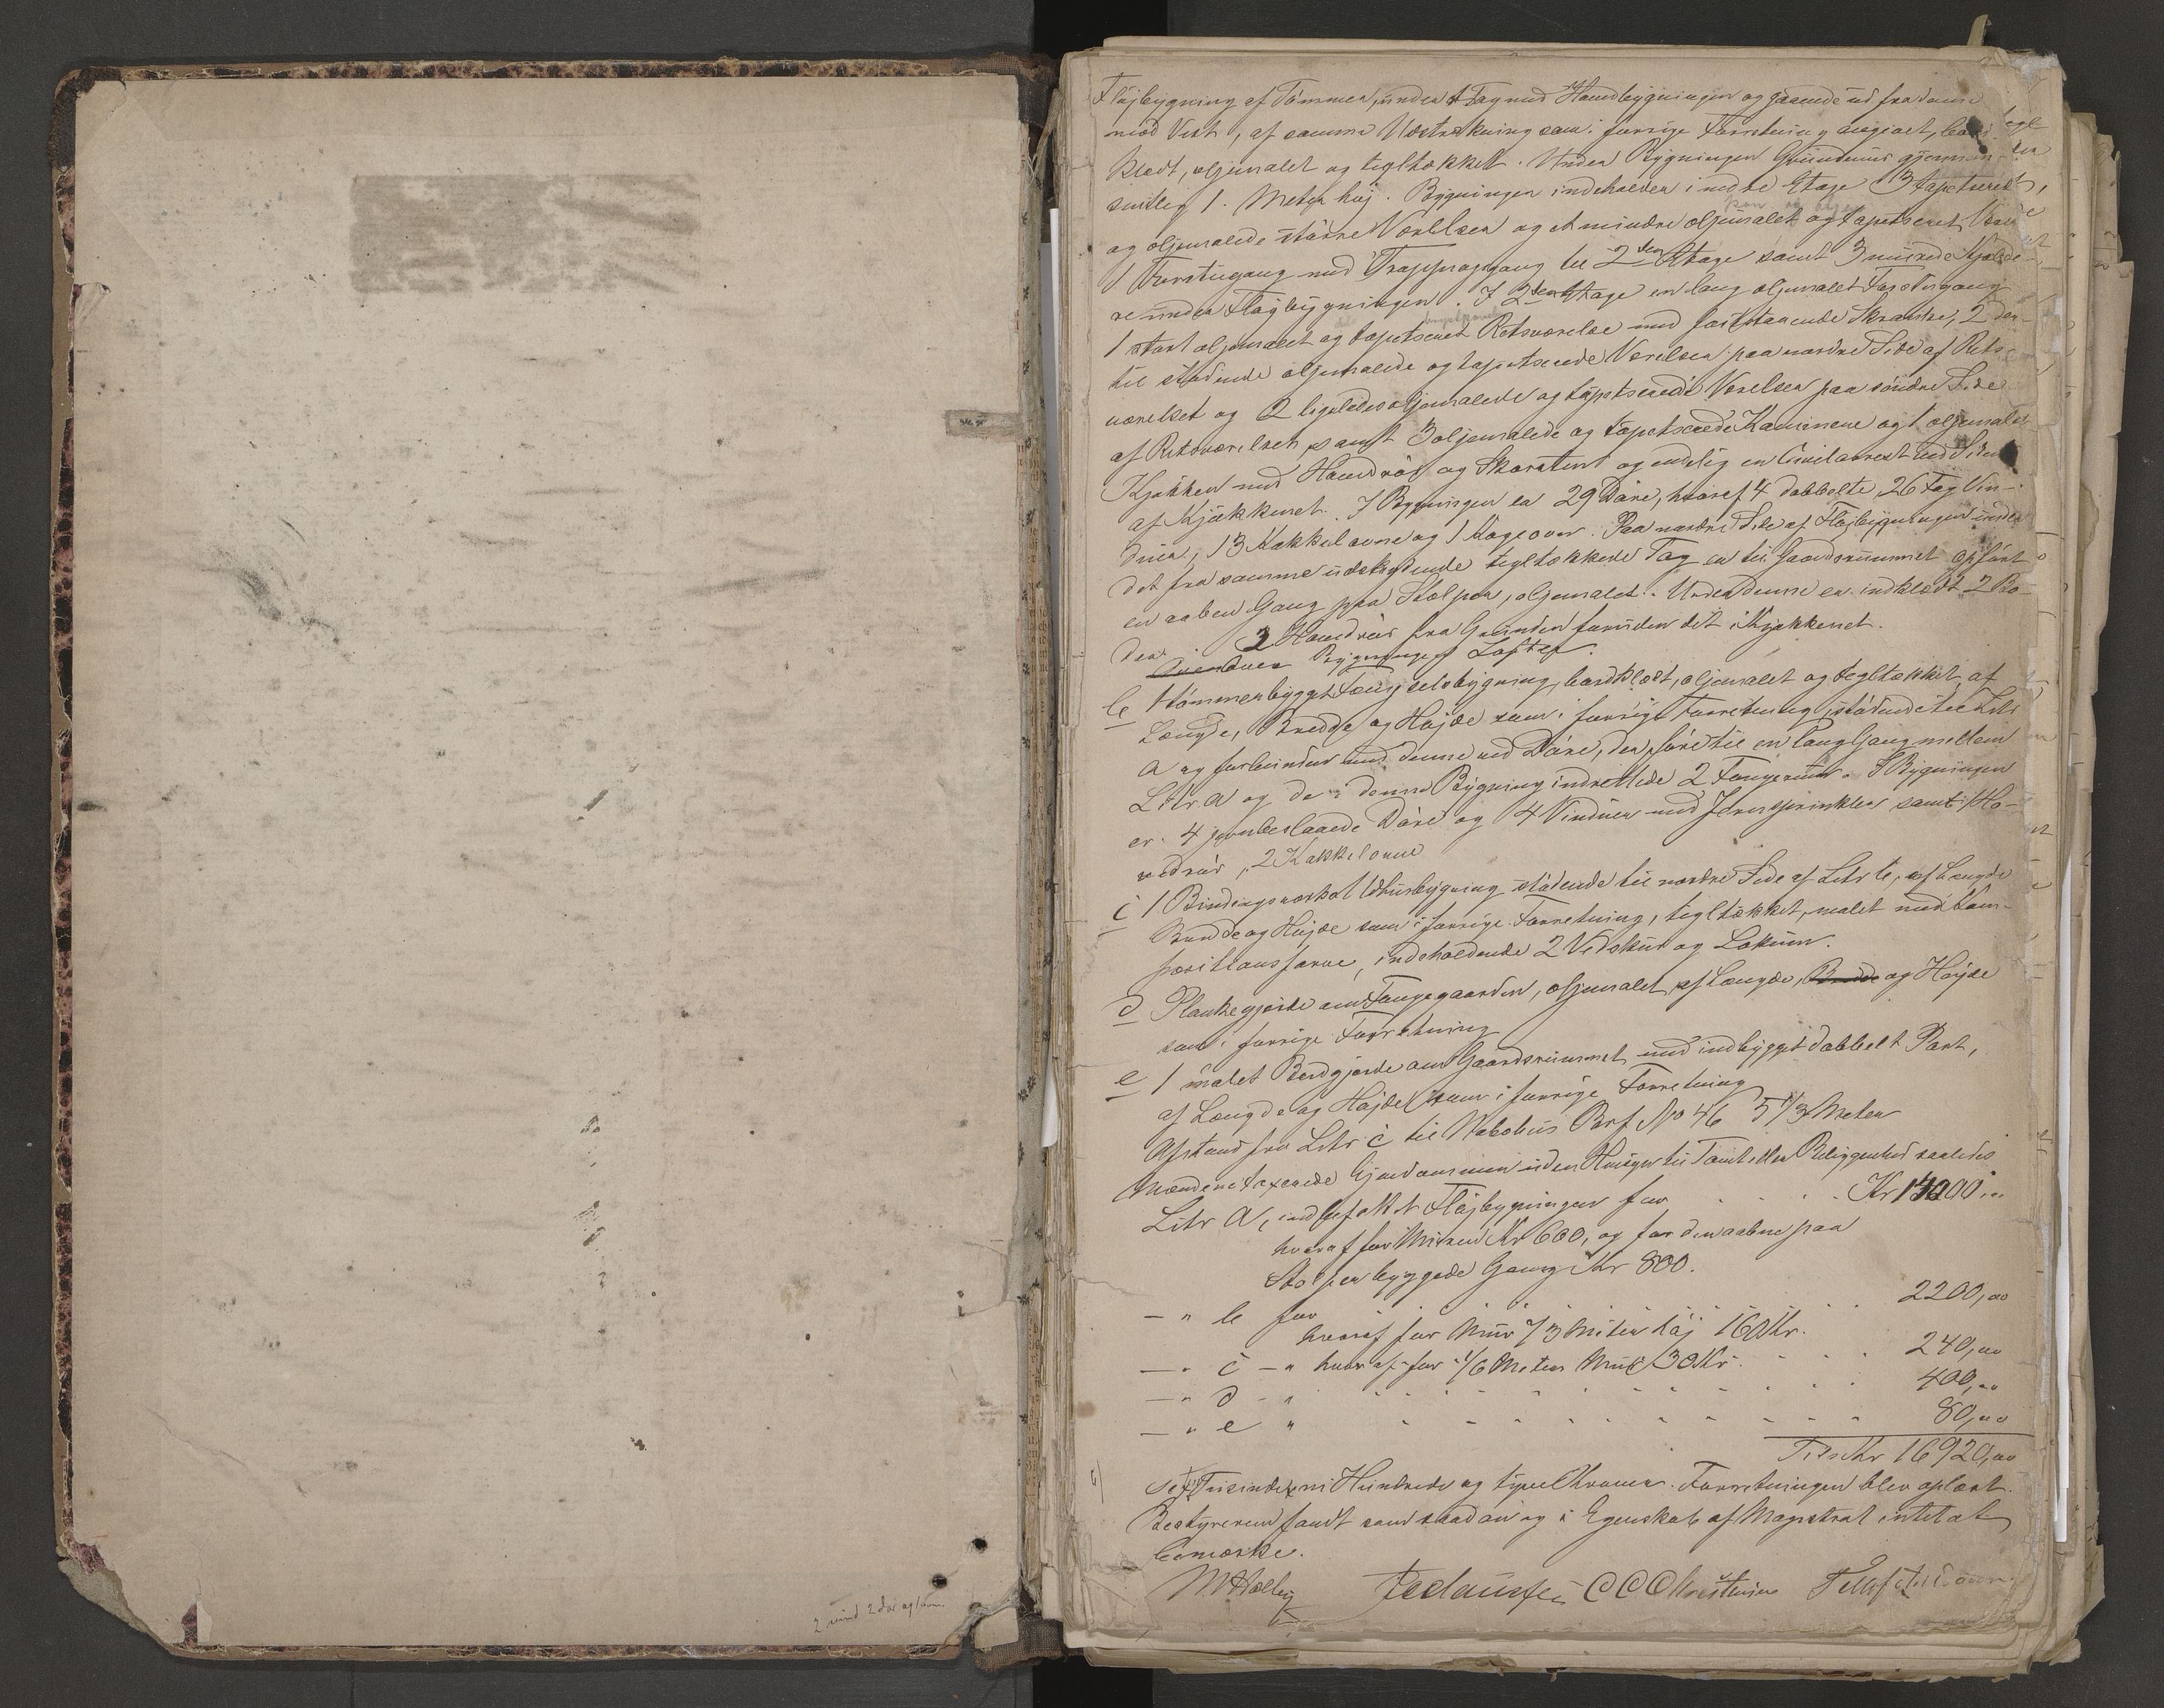 2 vind 2 dør og
Fløjbygning af Tømmer, under 1 Tag med Hovedbygningen og gaaende ud fra denne
mod Vest, af samme Udstrækning som i forrige Forretning angivet, bord-
klædt, oljemalet og tegltækket. Under Bygningen Grundmur gjennem-
snitlig 1 Meter høj. Bygningen indeholder i nedre Etage 3 tapetserede,
og oljemalede større Værelser og et mindre oljemalet og tapetseret Værelse
1 Forstugang med Trappeopgang til 2den Etage samt 3 murede Kjælde-
re under Fløjbygningen. I 2den Etage en lang oljemalet Forstugang
1 stort oljemalet og tapetseret Retsværelse med faststaaende Skranke, 2 der-
til stødende oljemalede og tapetserede Værelser paa nordre Side af Rets-
værelset og 2 ligeledes oljemalede og tapetserede Værelser paa søndre Side
af Retsværelset samt 3 oljemalede og tapetserede Kamrene og 1 oljemalet
Kjøkken med Hovedrør og Skorsten og endelig en Civilarrest ved Siden
af Kjøkkenet. I Bygningen er 29 Døre, hvoraf 4 dobbelte, 26 Fag Vin-
duer, 13 Kakkelovne og 1 Kogeovn. Paa nordre Side af Fløjbygningen under
det fra samme udskydende tegltækkede Tag er til Gaardsrummet opført
en aaben Gang paa Stolper, oljemalet. Under denne er indklædt 2 Bo-
der. 3 Hovedrør fra Grunden foruden det i Kjøkkenet.
Bygningens Lofter.
b 1 tømmerbygget Fængselsbygning, bordklædt, oljemalet og tegltækket, af
Længde, Bredde og Højde som i forrige Forretning, stødende til Litr
a og forbunden med denne ved Døre, der føre til en lang Gang mellem
Litr. a og de i denne Bygning indrettede 2 Fangerum. I Bygningen
er 4 jernbeslaaede Døre og 4 Vinduer med Jernsprinkler samt 1 Ho-
vedrør, 2 Kakkelovne
c 1 Bindingsværks Udhusbygning stødende til nordre Side af Litr b, af Længde
Bredde og Højde som i forrige Forretning, tegltækket, malet med Kom-
positionsfarve, indeholdende 2 Vedskur og Lokum.
d Plankegjerde om Fangegaarden, oljemalet, af Længde, Bredde og Højde
som i forrige Forretning
e 1 malet Bordgjerde om Gaardsrummet med indbygget dobbelt Port,
af Længde og Højde som i forrige Forretning
Afstand fra Litr c til Nabohus Brf No 46 5 1/3 Meter
Mændene taxerede Ejendommen uden Hensyn til Tomt eller Beliggenhed saaledes
Litr a, indbefattet Fløjbygningen for . . . . Kr 14000,00
hvoraf for Muren Kr 600, og for den aabne paa
Stolper byggede Gang Kr 800.
— " b for . . . . . . 2200,00
hvoraf for Mur 2/3 Meter høj 160 Kr.
— " c — " hvoraf for 1/6 Meter Mur 30 Kr. . . . 240,00
— " d — " . . . . . . 400,00
— " e " . . . . . . 80,00
Tils Kr 16920,00
Sexten Tusinde ni Hundrede og tyve Kroner. Forretningen blev oplæst.
Bestyreren fandt som saadan og i Egenskab af Magistrat intet at
bemærke.
M Holby Fedausfen CCChristensen